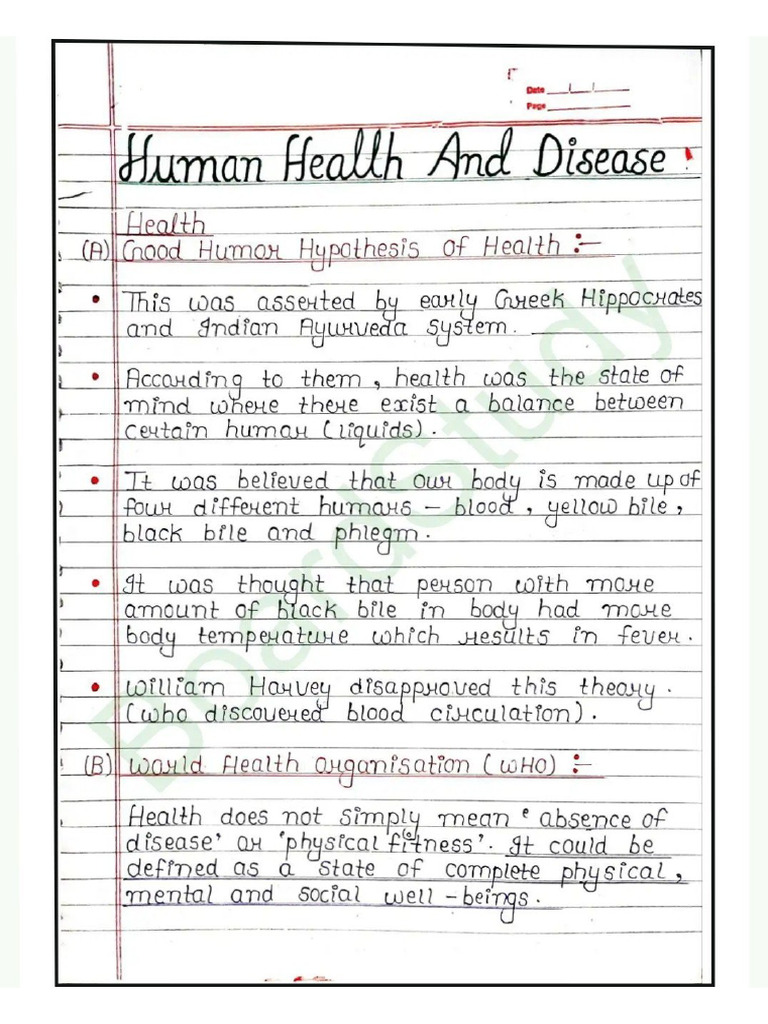 Date
Page
Human Health And Disease :
Health
(A) Good Humor Hypothesis of Health :-
• This was asserted by early Greek Hippocrates
and Indian Ayurveda System.
• According to them, health was the state of
mind where there exist a balance between
certain humar (liquids).
• It was believed that our body is made up of
four different humars - blood, yellow bile,
black bile and phlegm.
• It was thought that person with more
amount of black bile in body had more
body temperature which results in fever.
• William Harvey disapproved this theory.
(who discovered blood circulation).
(B) World Health Organisation (WHO) :-
Health does not simply mean ‘absence of
disease’ or ‘physical fitness’. It could be
defined as a state of complete physical,
mental and social well-beings.
BoardStudy